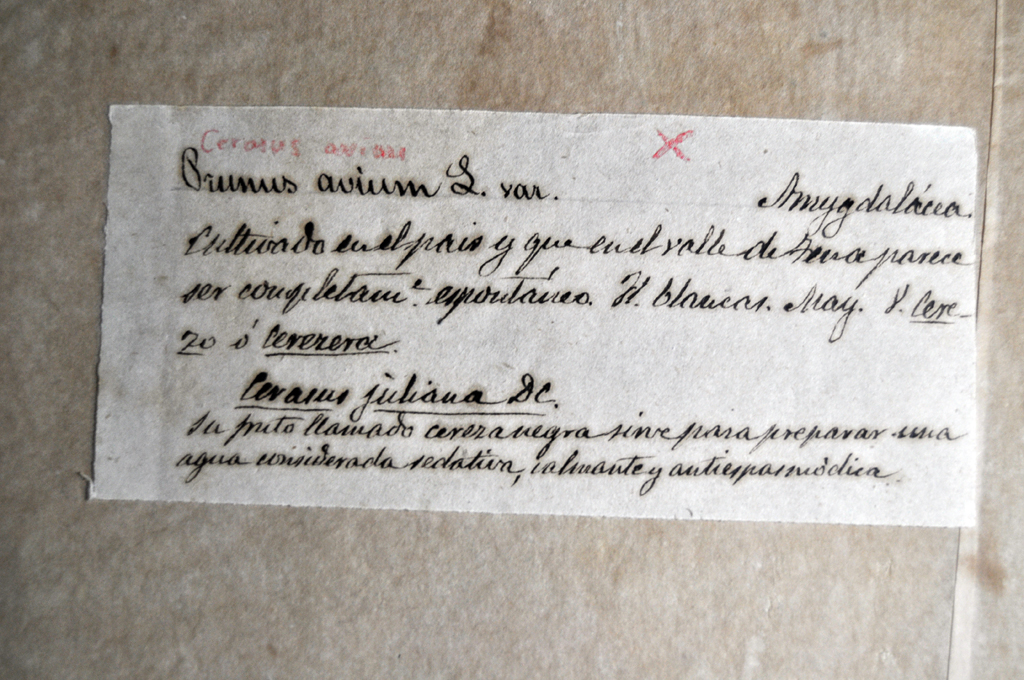 Cerasus avium X
Prunus avium L. var. Amygdalácea.
Cultivado en el pais y que en el valle de Tena parece
ser completam.e espontáneo. Fl. blancas. May. V. Cere-
zo ó Cerezera.
Cerasus juliana DC.
Su fruto llamado cereza negra sirve para preparar una
agua considerada sedativa, calmante y antiespasmódica